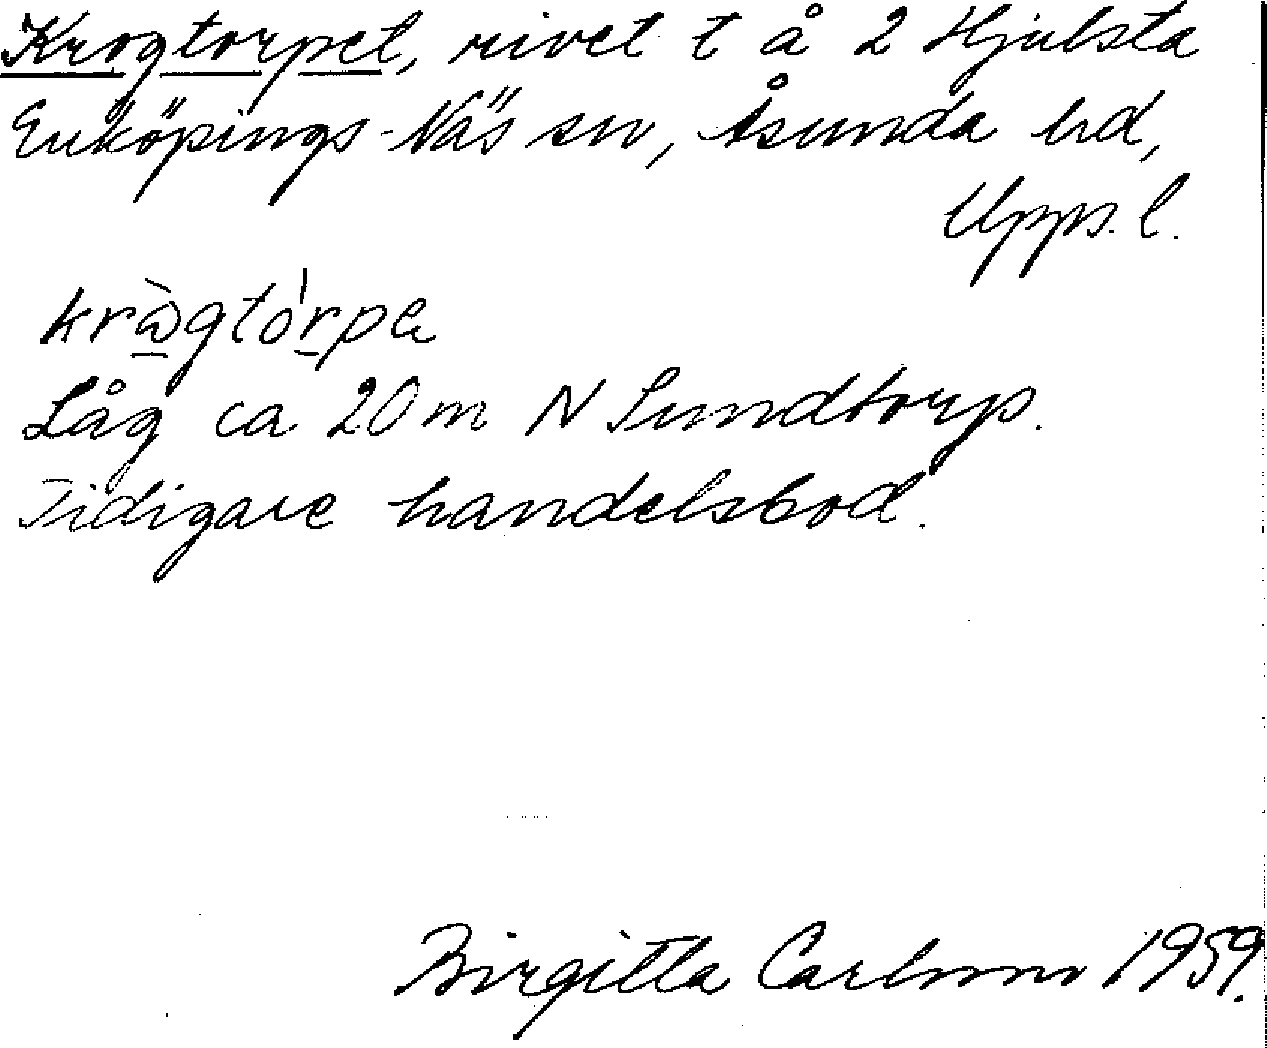 Krogtorpet, rivet t å 2 Hjulsta
Enköpings-Näs sn, Åsunda hd,
Upps. l.
Låg ca 20 m N Sundtorp.
Tidigare handelsbod.
Birgitta Carlsson 1959.